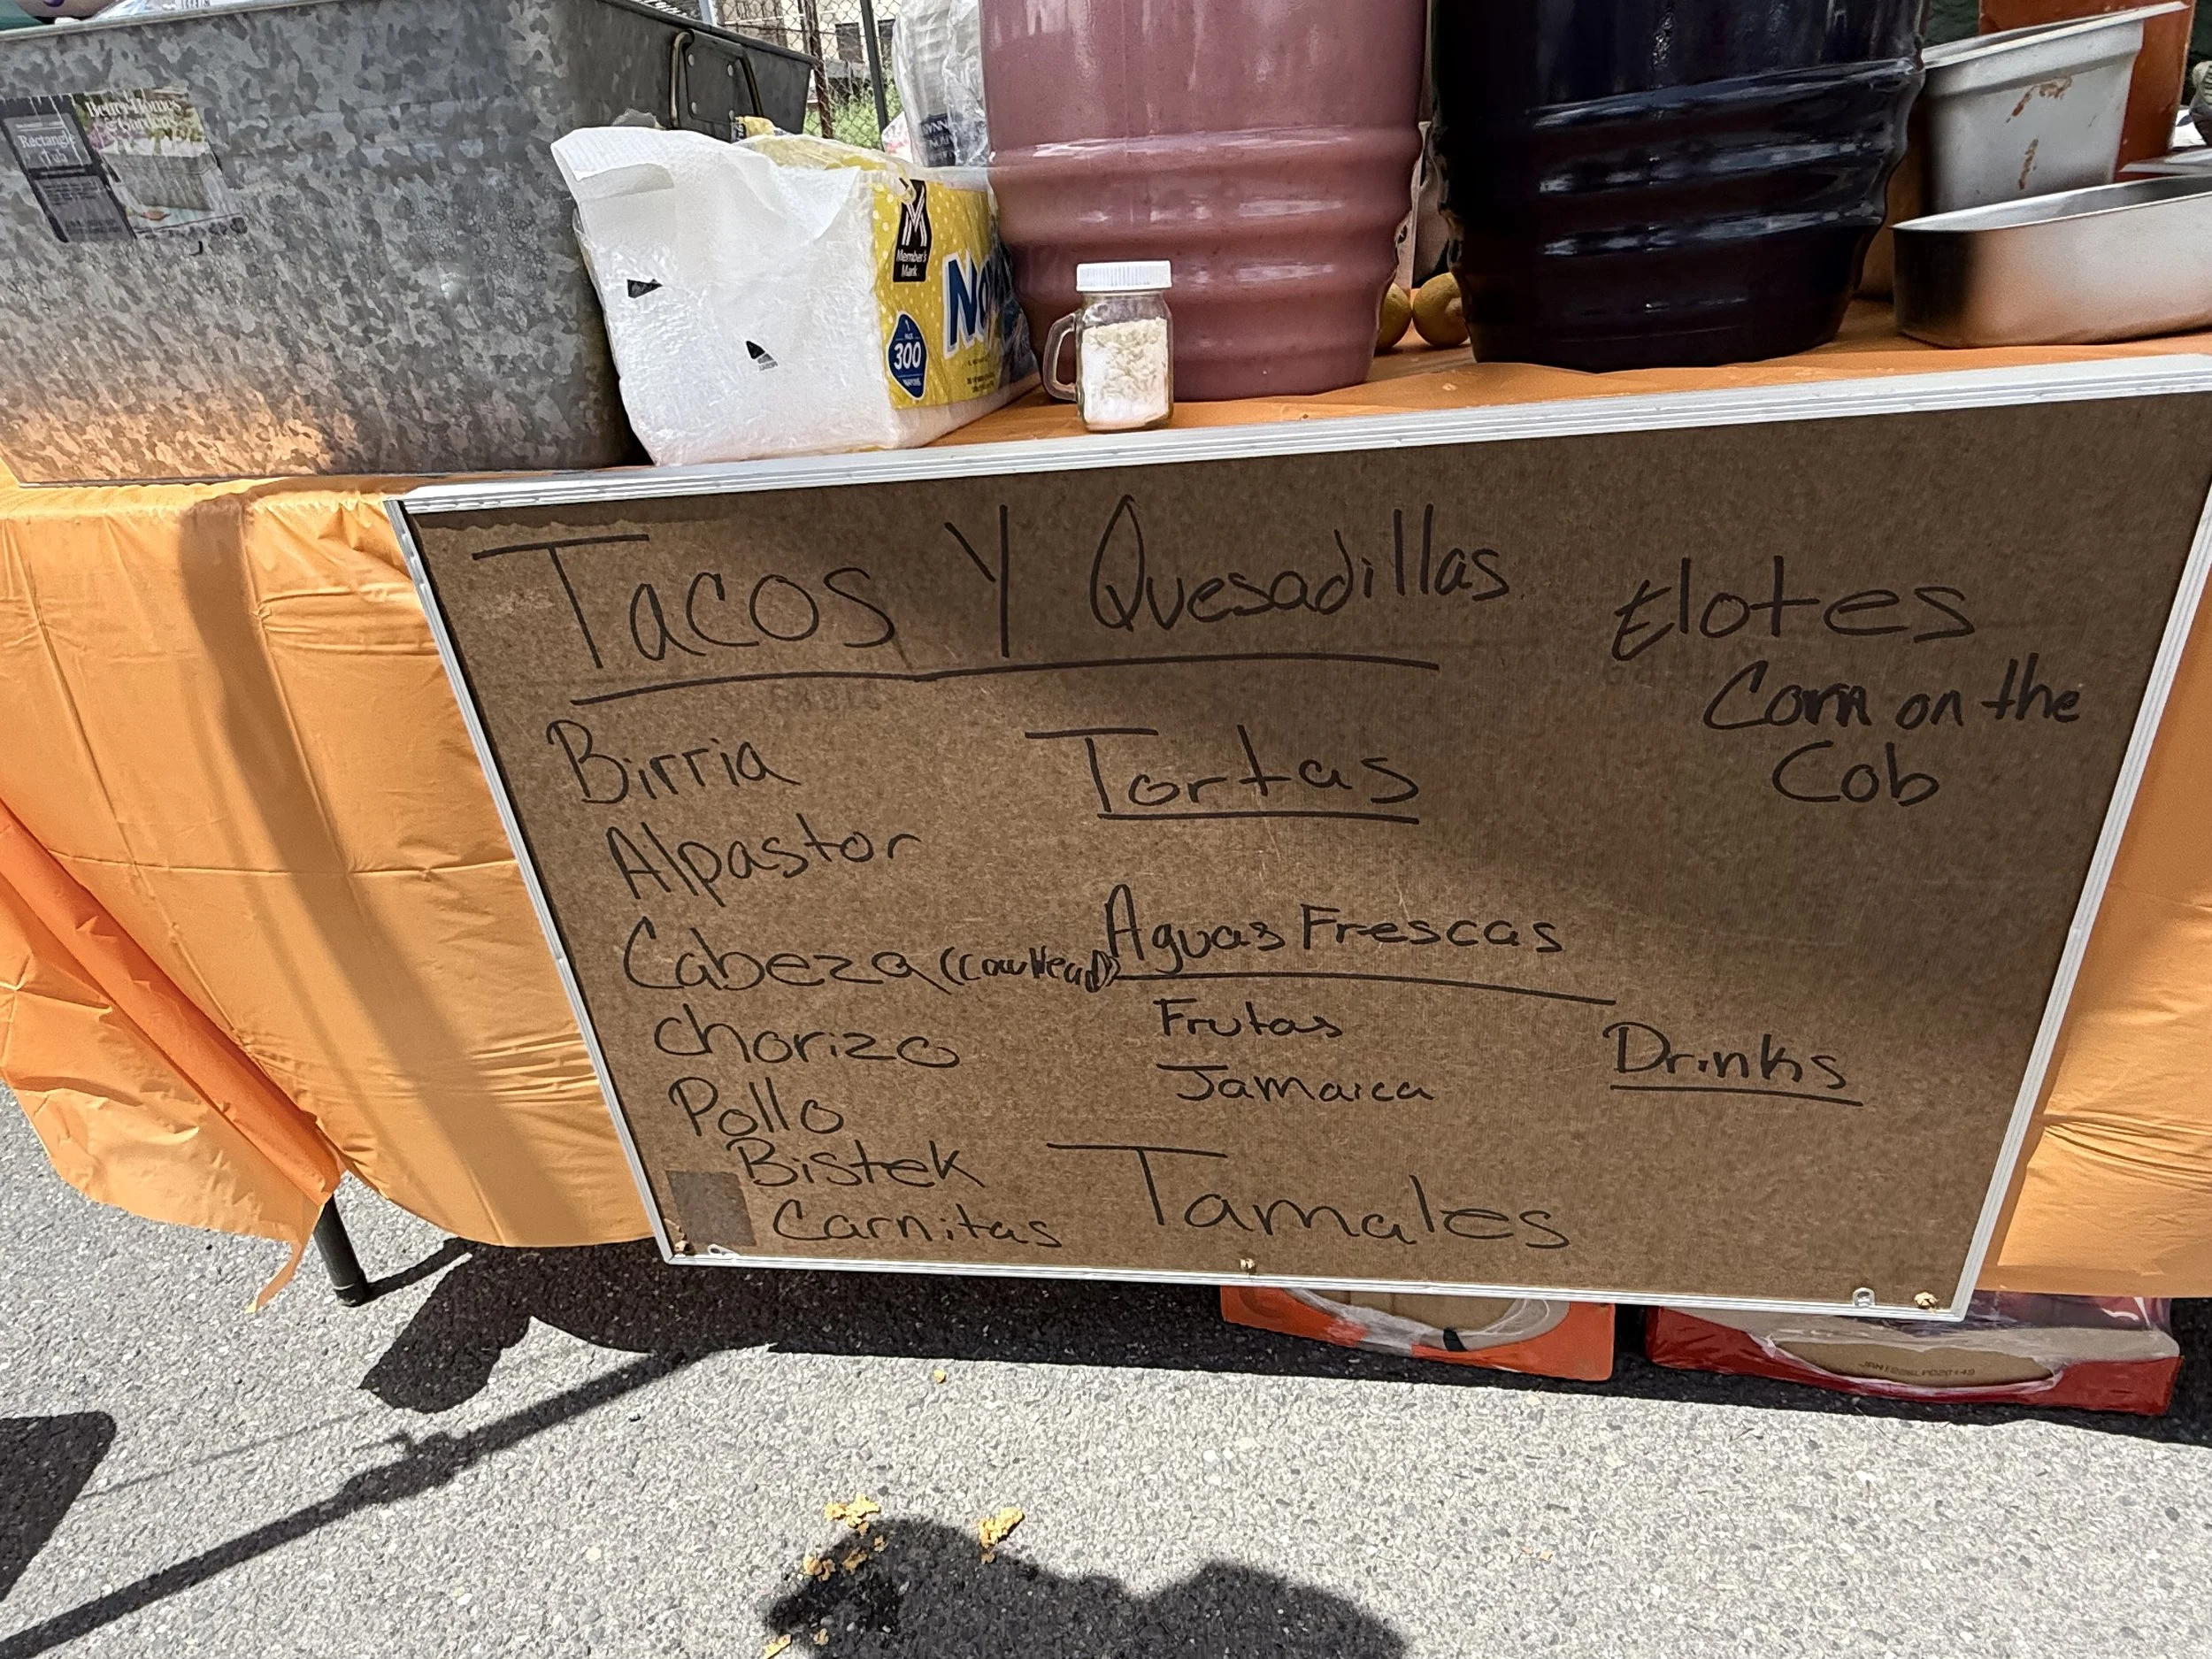 Better Homes
& Gardens
Rectangle
Tub
Member's
Mark
300
Tacos Y Quesadillas
Birria
Alpastor
Cabeza (CowHead)
chorizo
Pollo
Bistek
Carnitas
Tortas
Aguas Frescas
Frutas
Jamaica
Tamales
Elotes
Corn on the
Cob
Drinks